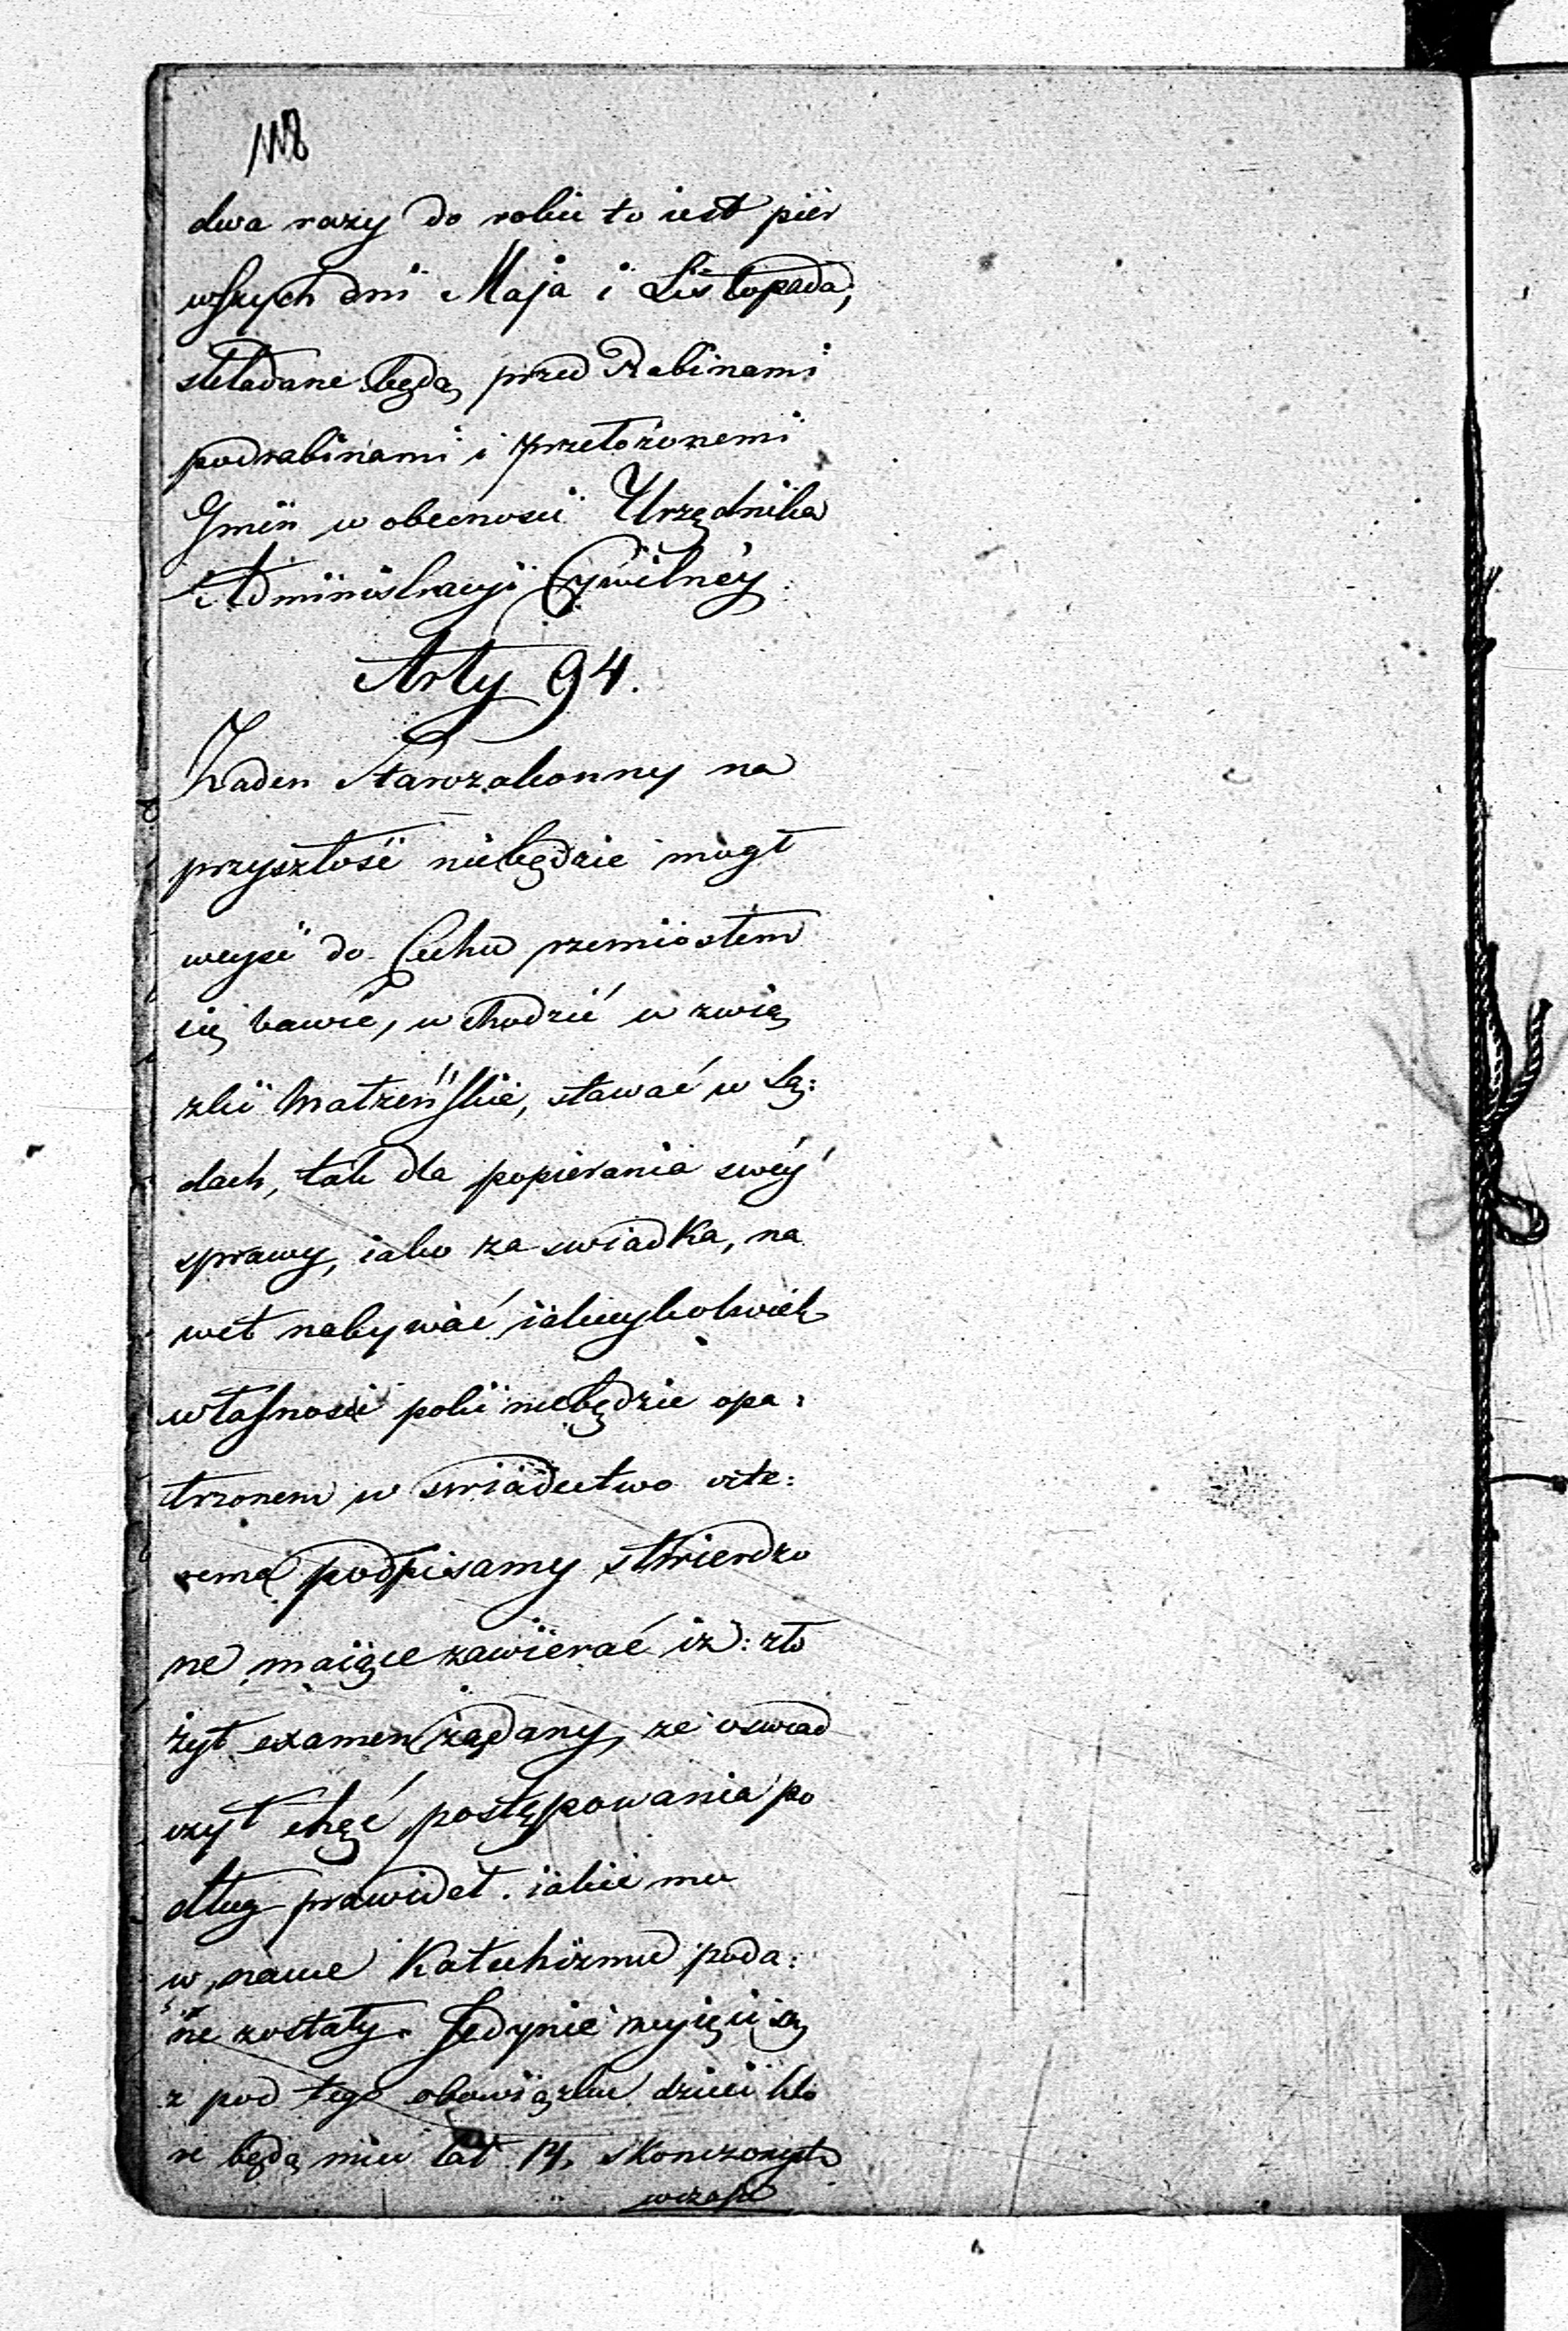 118
dwa razy do roku to iest pier
wszych dni Maja i Listopada,
składane będą przed Rabinami
podrabinami i przełożonemi
Gmin w obecnosci Urzędnika
Administracyi Cywilnéy.
Arty 94.
Żaden Starozakonny na
przyszłość niebędzie mógł
weyść do Cechu rzemiosłem
się bawić, wchodzić w zwią
zki Małżeńskie, stawać w Są:
dach, tak dla popierania swéy
sprawy, iako za swiadka, na
wet nabywać iakieykolwiek
własnosci poki niebędzie opa:
trzonem w swiadectwo czte:
rema podpisamy stwierdzo
ne maiące zawierać iż: zło
żył examen żądany, że oswiad
czył chęć postępowania po
dług prawideł. iakie mu
w nauce Katechizmu poda:
ne zostały. Jedynie wyięci są
z pod tego obowiązku dzieci któ
re będą miec lat 14, skonczonych
wczasie